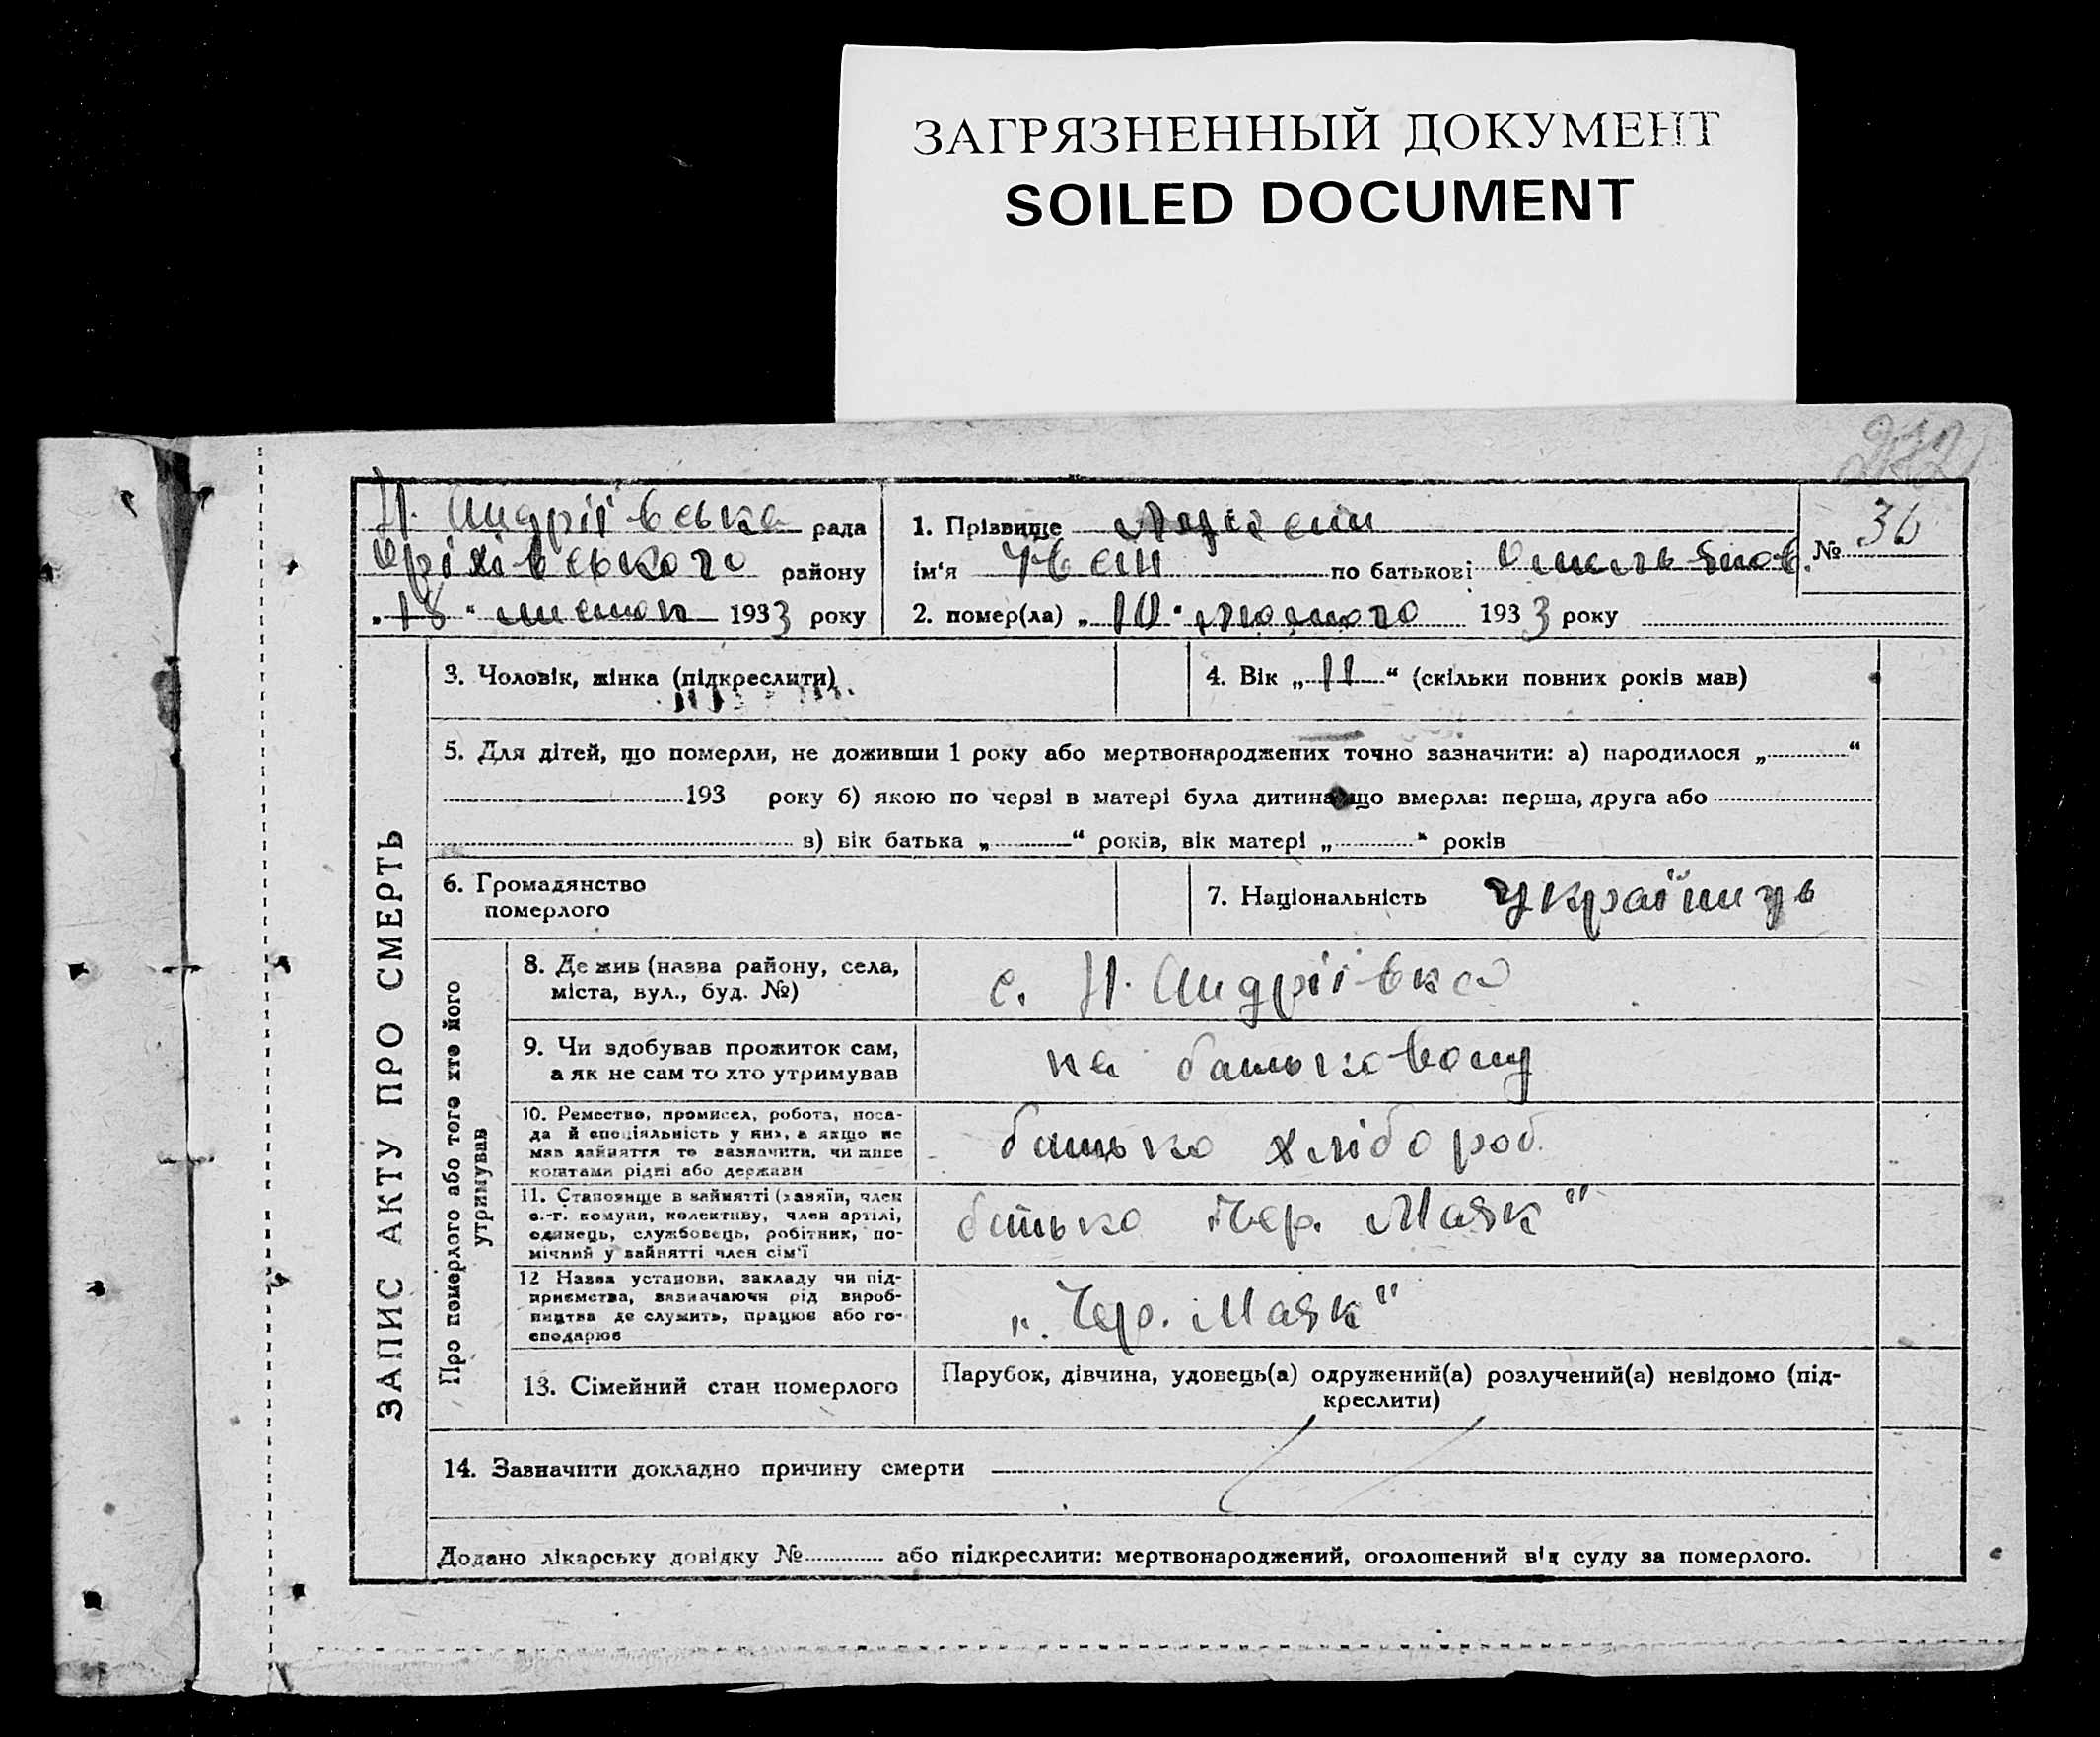 ЗАГРЯЗНЕННЫЙ ДОКУМЕНТ
SOILED DOCUMENT
Н. Андріївська рада
Оріхівського району
„18“ 1933 року
1. Прізвище
ім'я по батькові Омелянов.
№ 36
2. помер(ла) „10“ лютого 1933 року
ЗАПИС АКТУ ПРО СМЕРТЬ
3. Чоловік, жінка (підкреслити)
4. Вік „11“ (скільки повних років мав)
5. Для дітей, що померли, не доживши 1 року або мертвонароджених точно зазначити: а) народилося „ “
193 року б) якою по черзі в матері була дитина що вмерла: перша, друга або
в) вік батька „ “ років, вік матері „ “ років
6. Громадянство
померлого
7. Національність українць
Про померлого або того хто його
утримував
8. Де жив (назва району, села,
міста, вул., буд. №)
с. Н. Андріївка
9. Чи здобував прожиток сам,
а як не сам то хто утримував
на батьковому
10. Ремество, промисел, робота, поса-
да й спеціяльність у них, а якщо не
мав зайняття то зазначити, чи живе
коштами рідні або держави
батько хлібороб.
11. Становище в зайнятті (хазяїн, член
с.-г. комуни, колективу, член артілі,
одинець, службовець, робітник, по-
мічний у зайнятті член сім'ї
батько „Чер. Маяк“
12 Назва установи, закладу чи під-
приємства, зазначаючи рід вироб-
ництва де служить, працює або го-
сподарює
„Чер. Маяк“
13. Сімейний стан померлого
Парубок, дівчина, удовець(а) одружений(а) розлучений(а) невідомо (під-
креслити)
14. Зазначити докладно причину смерти
Додано лікарську довідку № або підкреслити: мертвонароджений, оголошений від суду за померлого.